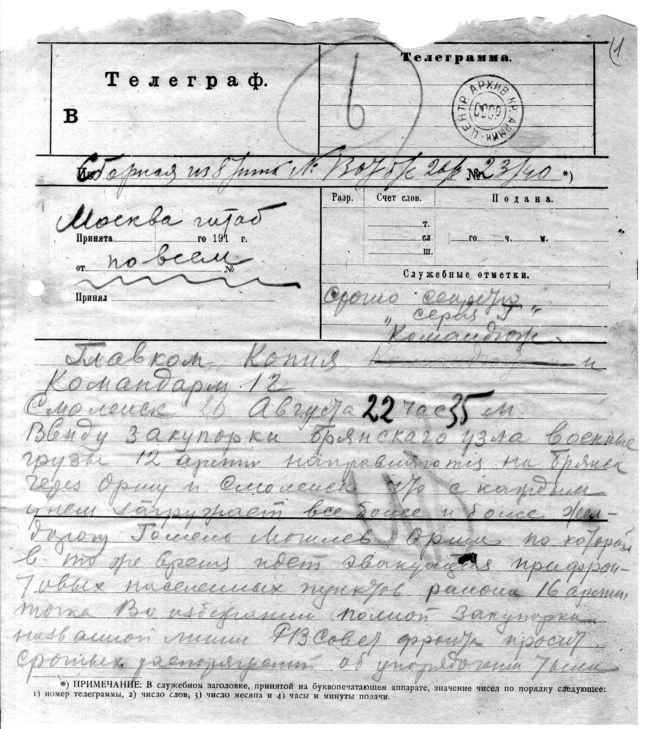 1
Телеграф.
В
6
Телеграмма.
ЦЕНТР АРХИВ КР. АРМИИ
СССР
Сборная из
№ 23/40 *)
Москва штаб
Принята го 191 г.
по всем
от №
Принял
Разр. Счет слов. Подана.
т.
сл го ч. м.
ш.
Служебные отметки.
срочно секретно
"серия Г"
Главком Копия и
Командарм 12
Смоленск 26 Августа 22 час 35 м
Ввиду закупорки брянского узла военные
грузы 12 армии направляются на брянск
через Оршу и Смоленск что с каждым
днем загружает все более и более жел-
дорогу Гомель Могилев Орша по которой
в то же время идет эвакуация прифрон-
товых населенных пунктов района 16 армии
точка Во избежании полной закупорки
названной линии РВСовет фронта просит
срочных об упорядочении
*) ПРИМЕЧАНИЕ: В служебном заголовке, принятой на буквопечатающем аппарате, значение чисел по порядку следующее:
1) номер телеграммы, 2) число слов, 3) число месяца и 4) часы и минуты подачи.